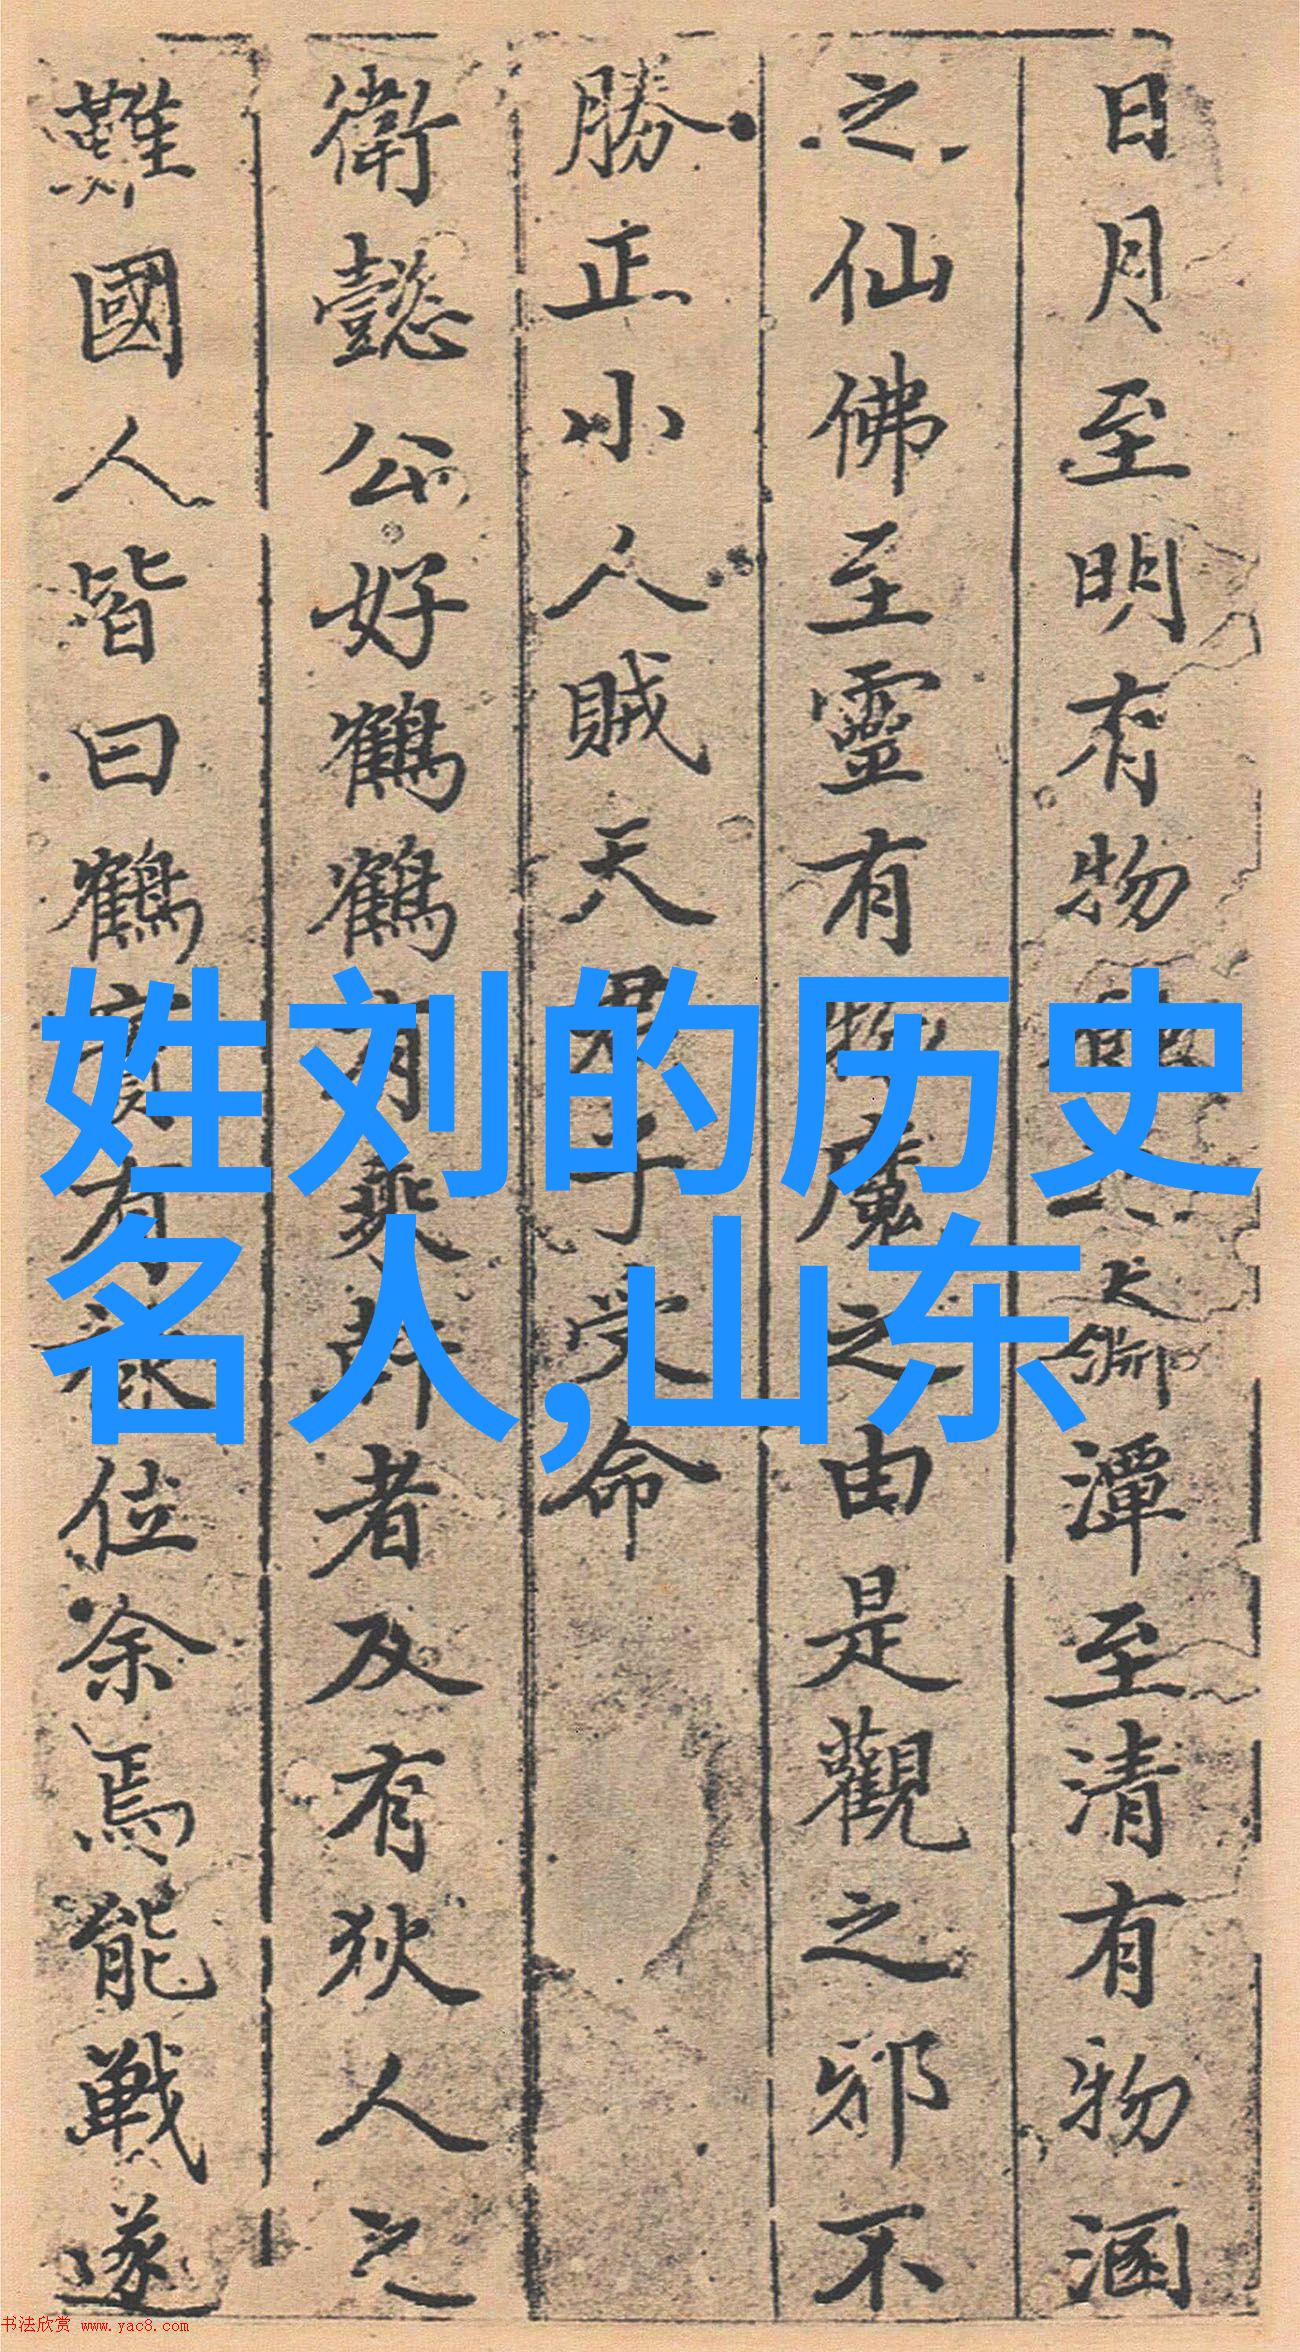 日月至明有物
潭至清有物涵
之仙佛至靈有物魔之由是觀之邪不
勝正小人賊天君子受命
衛懿公好鶴鶴有乘軒者及有狄人之
難國人皆曰鶴實有祿位余焉能戰遂
姓刘的历史
名人,山东
书法欣赏 www.yac8.com